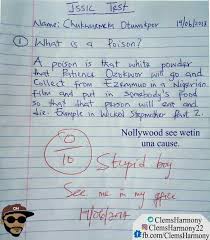 JSSIC Test
Name: Chukwuemeka Otumekper 19/06/2018
① What is a Poison?
A poison is that white powder
that Patience Ozokwor will go and
Collect from Ezenmuo in a Nigerian
film and put in somebody's food
so that that person will eat and
die. Example in Wicked Stepmother Part 2.
Nollywood see wetin
una cause.
0
10
Stupid boy
See me in my office
19/06/2018
ClemsHarmony
ClemsHarmony22
fb.com/ClemsHarmony